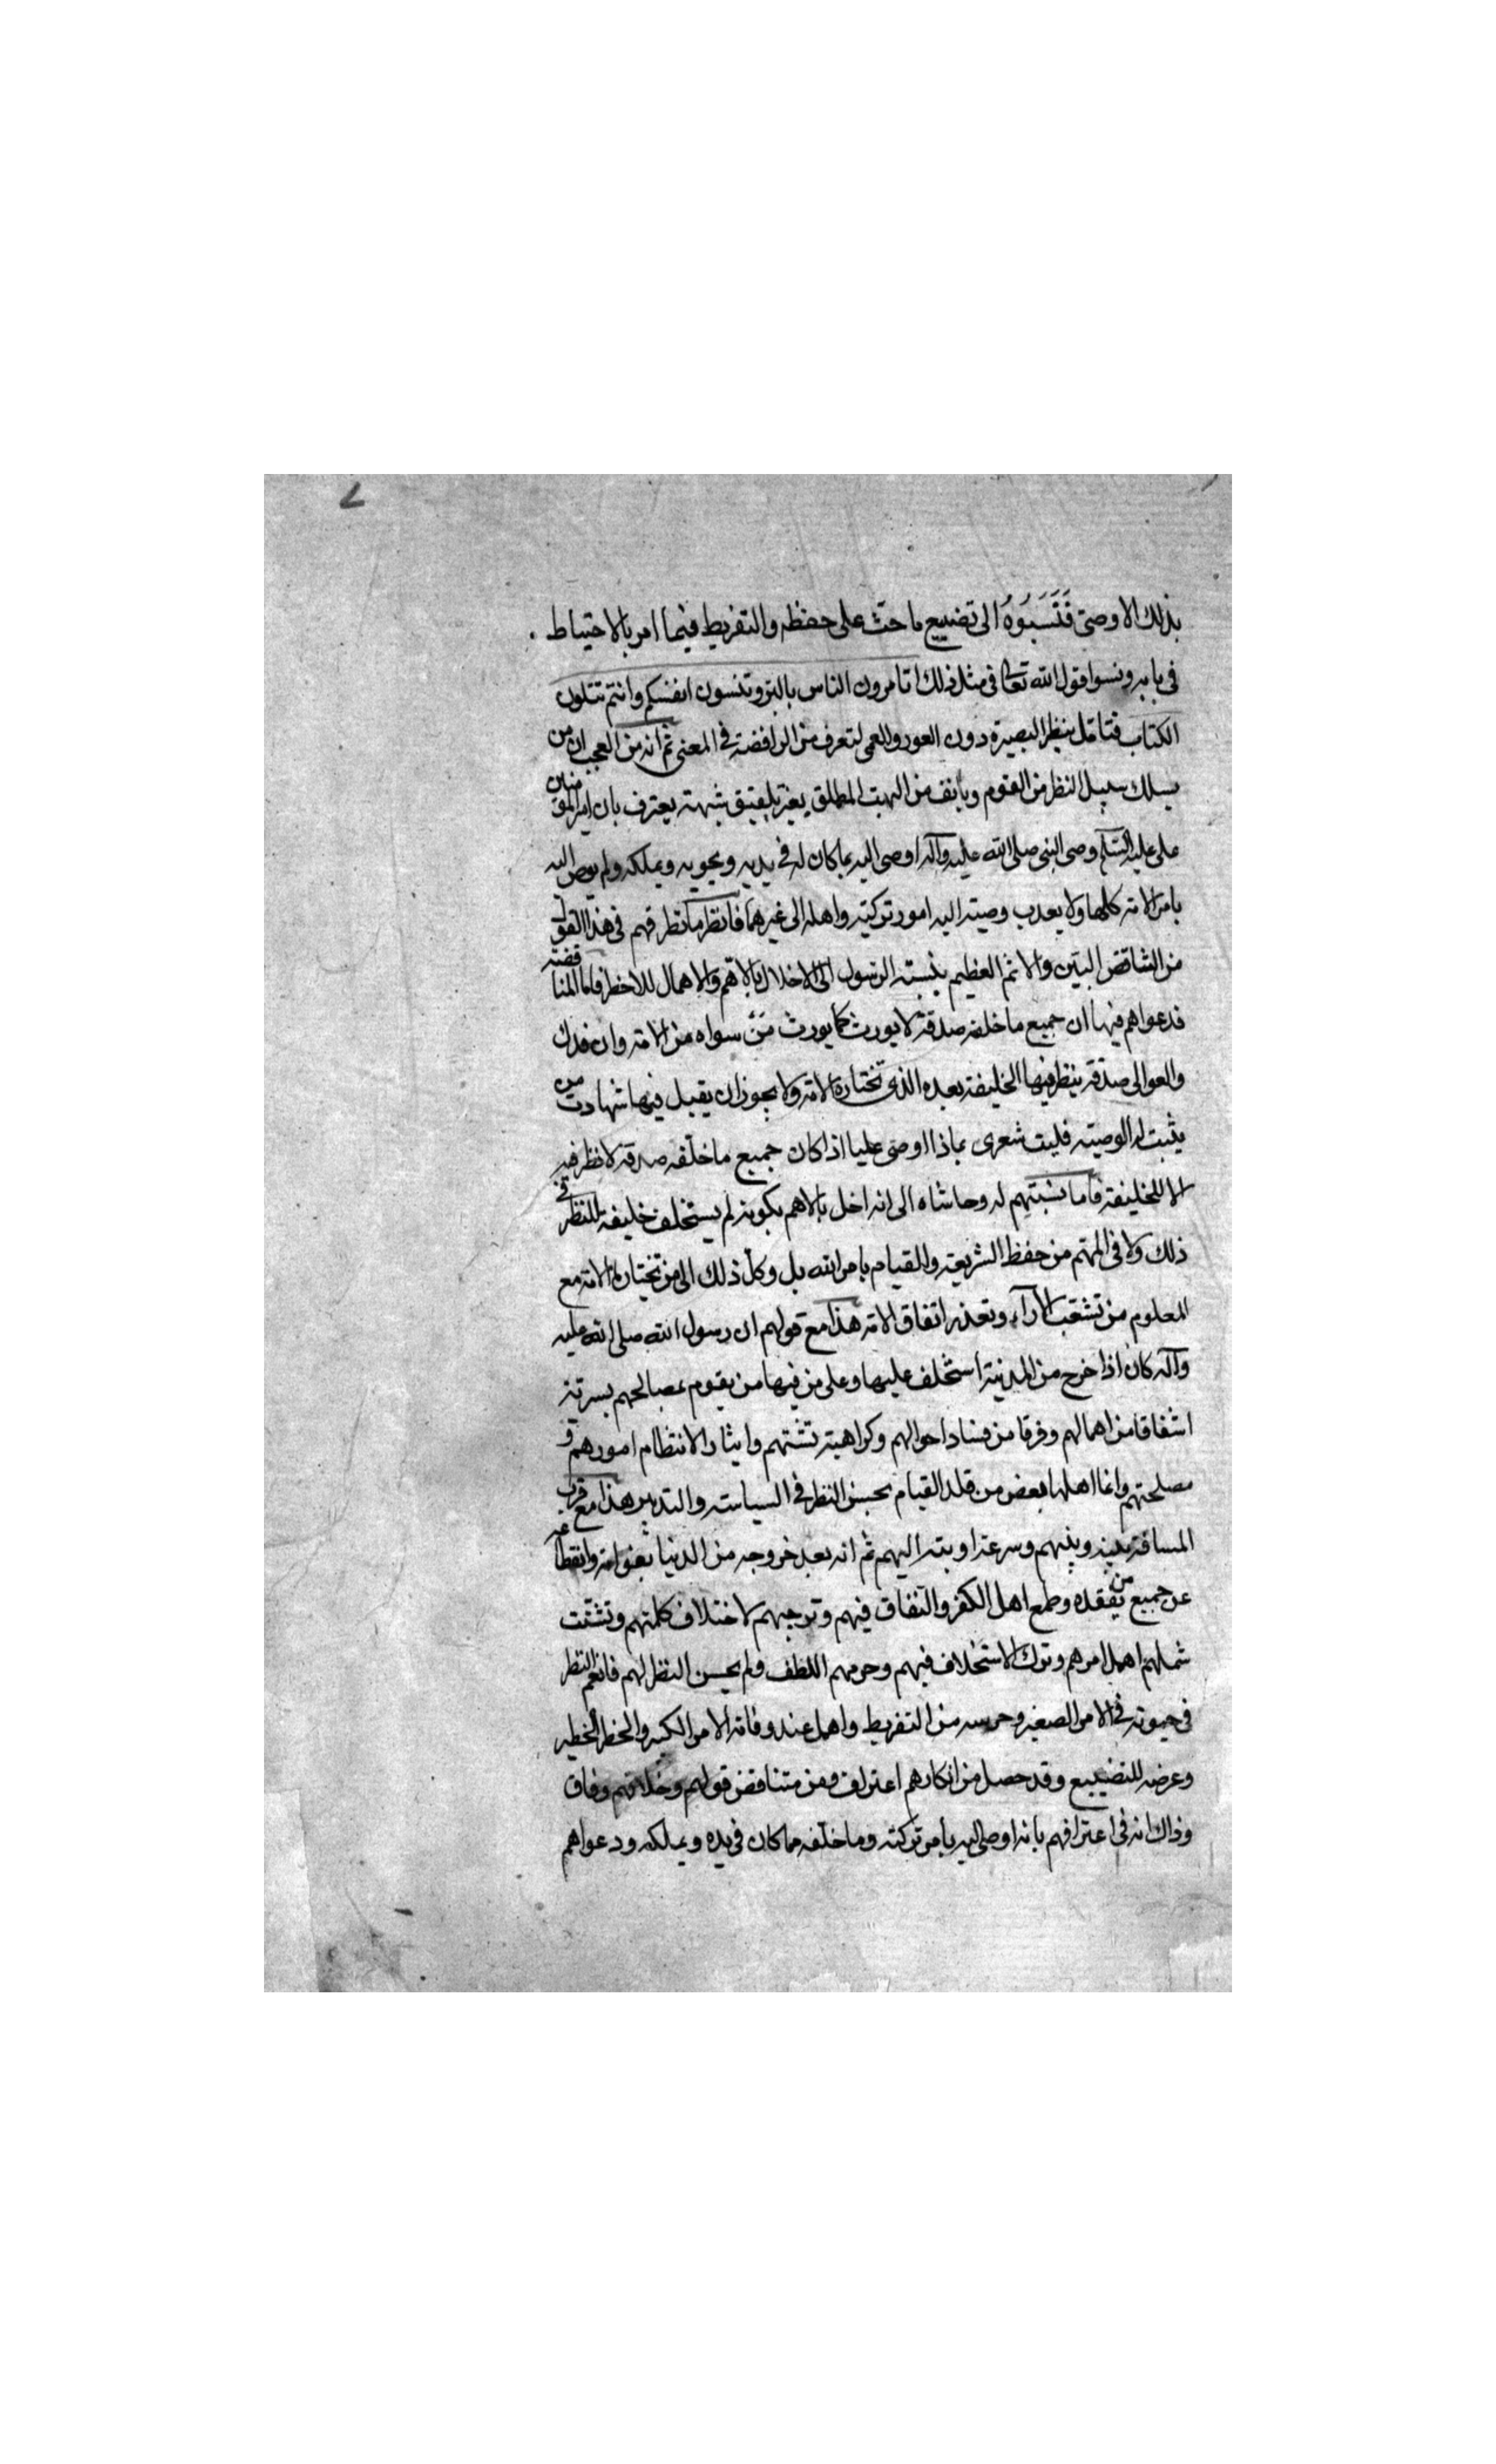 بذلك الا وصى فَنَسَبُوهُ الى تضييع ما حث على حفظه والتفريط فيما امر بالاحتياط
فى بابه ونسوا قول الله تعالى فى مثل ذلك اتامرون الناس بالبر وتنسون انفسكم وانتم تتلون
الكتاب فتامل بنظر البصيرة دون العور والعمى لتعرف من الرافضة فى المعنى ثم انه من العجب ان من
يسلك سبيل النظر من القوم ويانف من البهت المطلق بغير تلفيق شبهة يعترف بان امير المؤمنين
على عليه السلم وصى النبى صلى الله عليه وآله اوصى اليه بما كان له فى يديه ويحويه ويملكه ولم يوص اليه
بامر الامة كلها ولا بعدت وصيته اليه امور تركته واهله الى غيرهما فانظر ما تطرقهم فى هذا القول
من التناقض البين والاثم العظيم بنسبته الرسول الى الاخلال بالاهم والاهمال للاخطر فاما المناقضة
فدعواهم فيها ان جميع ما خلفه صدقة لا يورث كما يورث مَنْ سواه من الامة وان فدك
والعوالى صدقة ينظر فيها الخليفة بعده الذى تختاره الامة ولا يجوز ان يقبل فيها شهادت من
يثبت له الوصية فليت شعرى بماذا اوصى عليا اذا كان جميع ما خلفه صدقة لا نظر فيه
الا للخليفة فاما نسبتهم له وحاشاه الى انه اخل بالاهم بكونه لم يستخلف خليفة للنظر فى
ذلك ولا فى المهم من حفظ الشريعة والقيام بامر الله بل وكل ذلك الى من تختاره الامة مع
المعلوم من تشعب الآراء وتعذر اتفاق الامة هذا مع قولهم ان رسول الله صلى الله عليه
وآله كان اذا خرج من المدينة استخلف عليها وعلى من فيها من يقوم بمصالحهم بسرته
اشفاقا من اهمالهم وفرقا من فساد احوالهم وكراهية تشتتهم وايثارا لانتظام امورهم و
مصلحتهم وانما اهلها بعض من قلد القيام بحسن النظر فى السياسة والتدبير هذا مع قرب
المسافة بينه وبينهم وسرعة اوبته اليهم ثم انه بعد خروجه من الدنيا بعنوانه وانقطاعه
عن جميع من تفقده وطمع اهل الكفر والنفاق فيهم وتوجههم لاختلاف كلمتهم وتشتت
شملهم اهمل امرهم وترك الاستخلاف فيهم وحرمهم اللطف ولم يحسن النظر لهم فانعم النظر
فى حيوته فى الامر الصغير وحرسه من التفريط واهمل عند وفاته الامر الكبير والخطر الخطير
وعرضه للتضييع وقد حصل من انكارهم اعتراف ومن متناقض قولهم وخلافهم وفاق
وذاك انه فى اعترافهم بانه اوصى اليه بامر تركته وما خلفه مما كان فى يده ويملكه ودعواهم